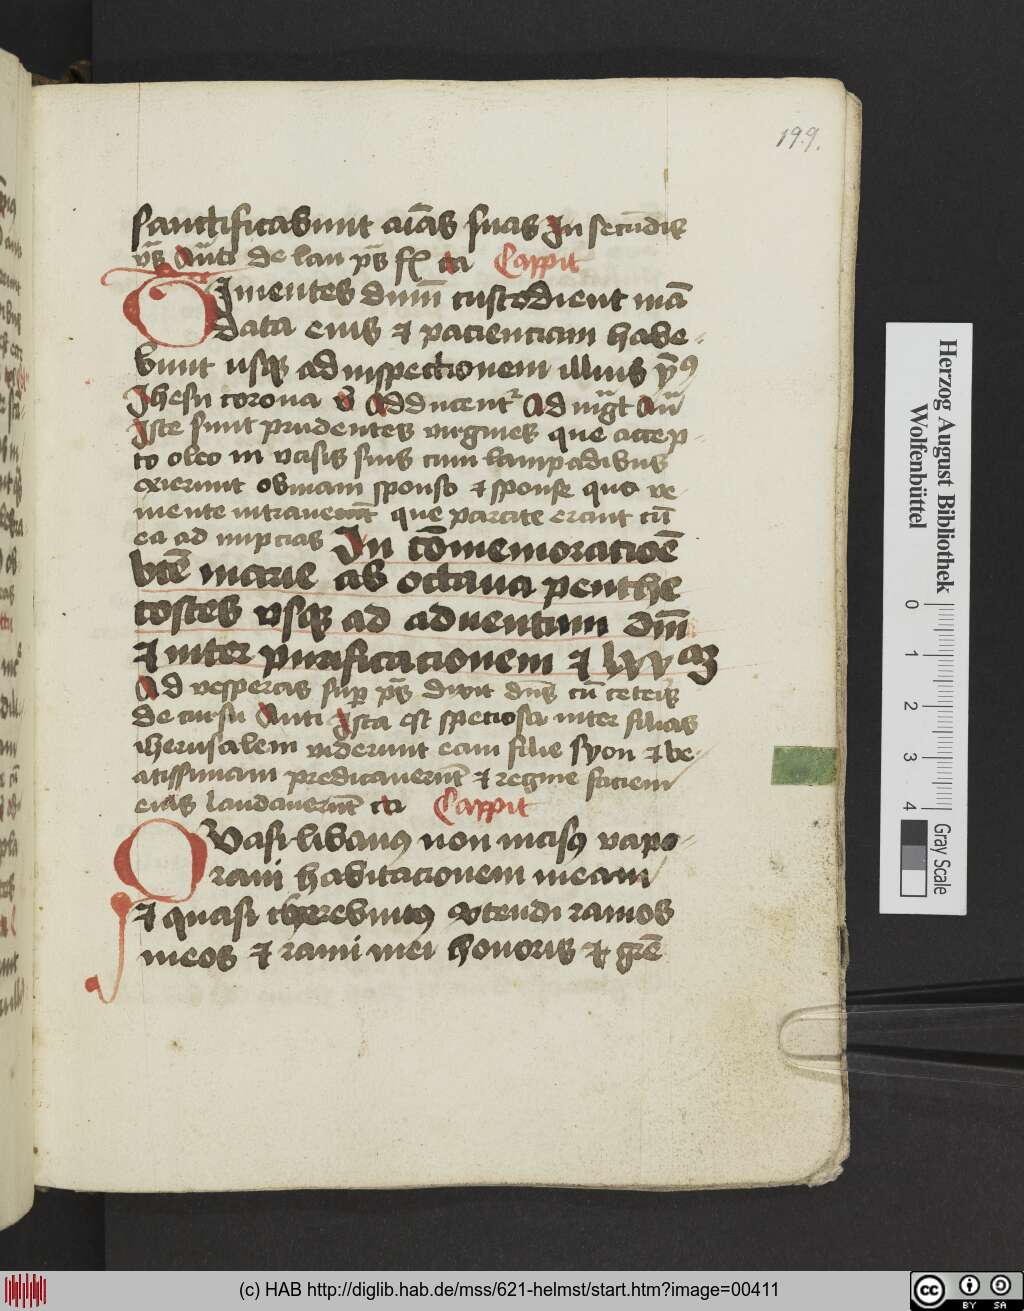 199.
sanctificabunt aīas suas In secūdis
vs̄ Anti de lau ps̄ fx̄ Cappit
Timentes dnm̄ custodient mā
data eius et pacienciam habe-
bunt usq3 ad inspectionem illius ym9
Jhesu corona v̄ Adducent2 Ad mgt Ant
Iste sunt prudentes virgines que accep-
to oleo in vasis suis cum lampadibus
exierunt obviam sponso et sponse quo ve
niente intraverūt que parate erant cū
ea ad nupcias In cōmemoratiōe
bte marie ab octava penthe
costes usq3 ad adventum dm̄
et inter purificacionem et lxxam
Ad vesperas sup ps̄ dixit dn̄s cū ceteris
de cursu Anti Ista est speciosa inter filias
iherusalem viderunt eam filie syon et be-
atissimam predicaverūt et regine faciem
eius laudaverūt Cappit
Quasi libanus non incisus vapo-
ravi habitacionem meam
et quasi therebintus extendi ramos
meos et rami mei honoris et grē
Herzog August Bibliothek
Wolfenbüttel
0 1 2 3 4
Gray Scale
(c) HAB http://diglib.hab.de/mss/621-helmst/start.htm?image=00411
cc BY SA